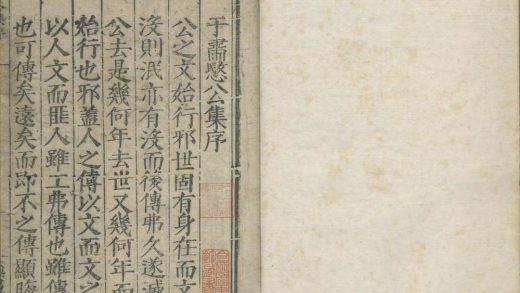 于肅愍公集序
公之文始行邪世固有身在而文
沒則泯亦有沒而後傳弗久遂滅
公去是幾何年去世又幾何年而
始行也邪蓋人之傳以文而文之
以人文而匪人雖工弗傳也雖傳
也可傳矣遠矣而即不之傳顯晦